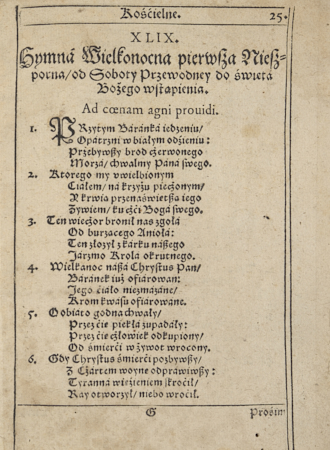 Kośćielne. 25.
XLIX.
Hymná Wielkonocna pierwsza Niesz-
porna/ od Soboty Przewodney do świetá
Bożego wstąpienia.
Ad cœnam agni prouidi.
1. PRzytym Baránká iedzeniu/
Opatrzni w białym odzieniu:
Przebywszy brod cżerwonego
Morzá/ chwalmy Páná swego.
2. Ktorego my vwielbionym
Ciáłem/ ná krzyżu piecżonym/
A krwią przenaświetszą iego
Żywiem/ ku cżći Bogá swego.
3. Ten wiecżor bronił nas zgołá
Od burzącego Aniołá:
Ten złożył z kárku nászego
Járzmo Krolá okrutnego.
4. Wielkanoc nászá Chrystus Pan/
Baránek iuż ofiárowan:
Jego ćiáło niezmázáne/
Krom kwásu ofiárowáne.
5. O obiáto godna chwały/
Przez ćie piekłá zupadáły:
Przez ćie cżłowiek odkupiony/
Od śmierći w żywot wrocony.
6. Gdy Chrystus śmierći pozbywszy/
Z Cżártem woyne odpráwiwszy:
Tyránná wieźieniem skroćił/
Ray otworzył/ niebo wroćił.
G Prosim